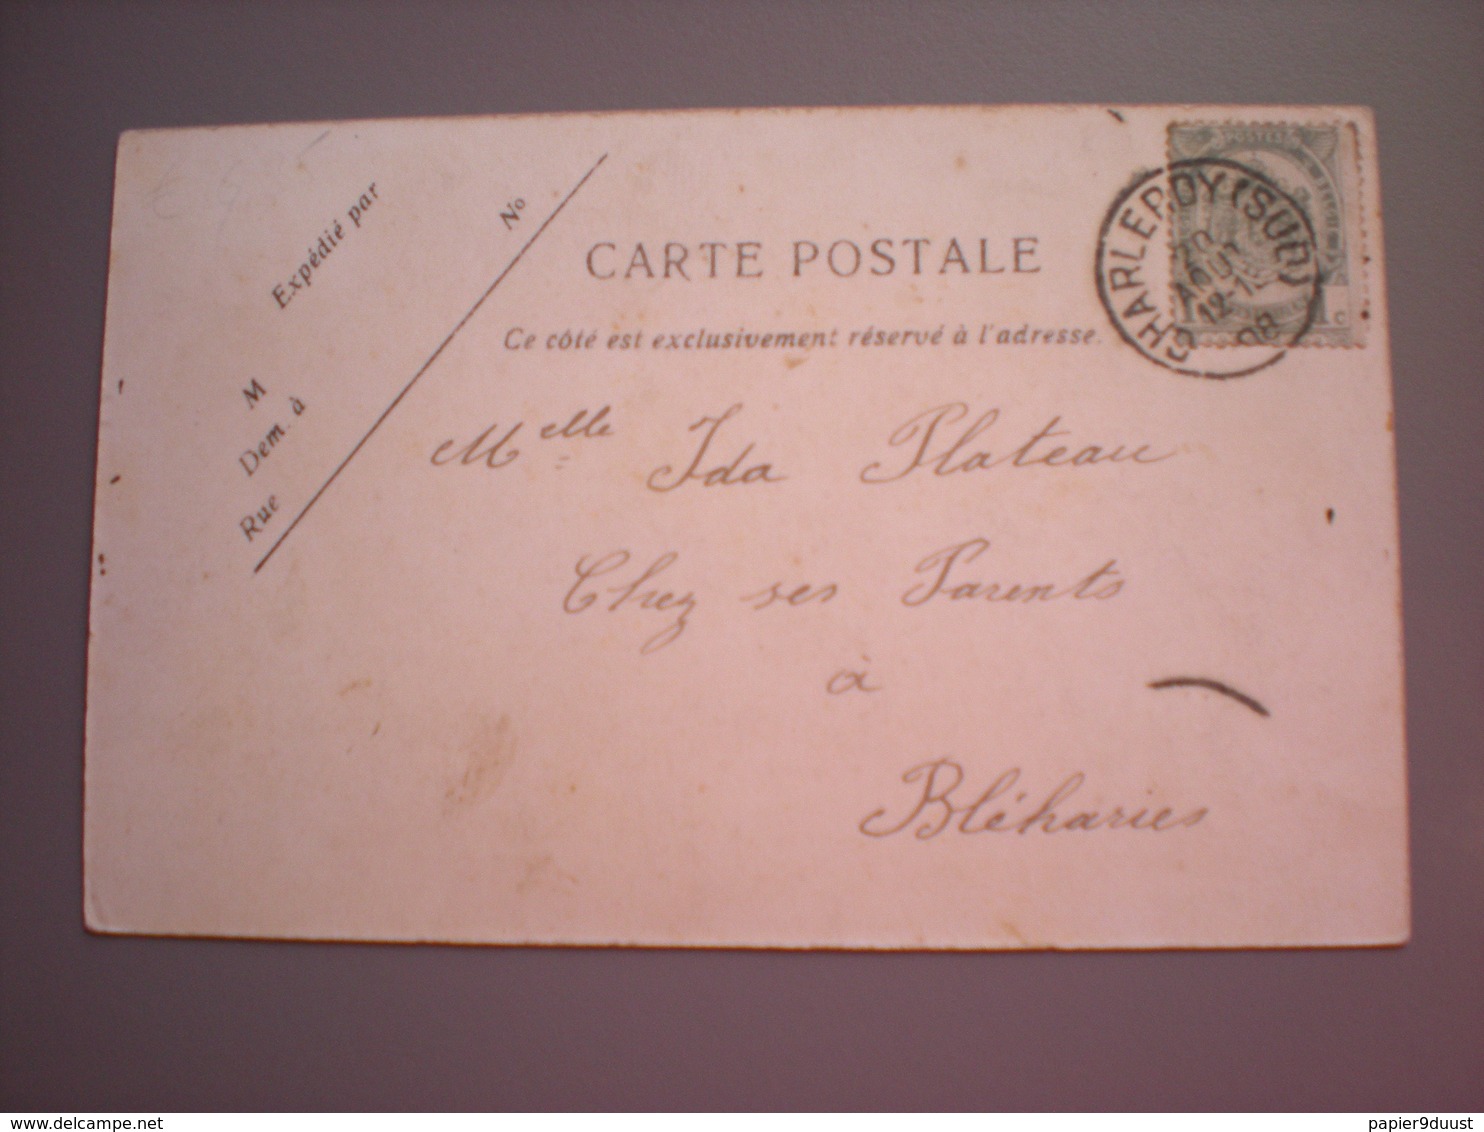 Expédié par
No
M
Dem. à
Rue
CARTE POSTALE
Ce côté est exclusivement réservé à l'adresse.
POSTES
1 c
CHARLEROY (SUD)
AOUT
08
Melle Ida Plateau
Chez ses Parents
à
Bléharies
www.delcampe.net
papier9duust